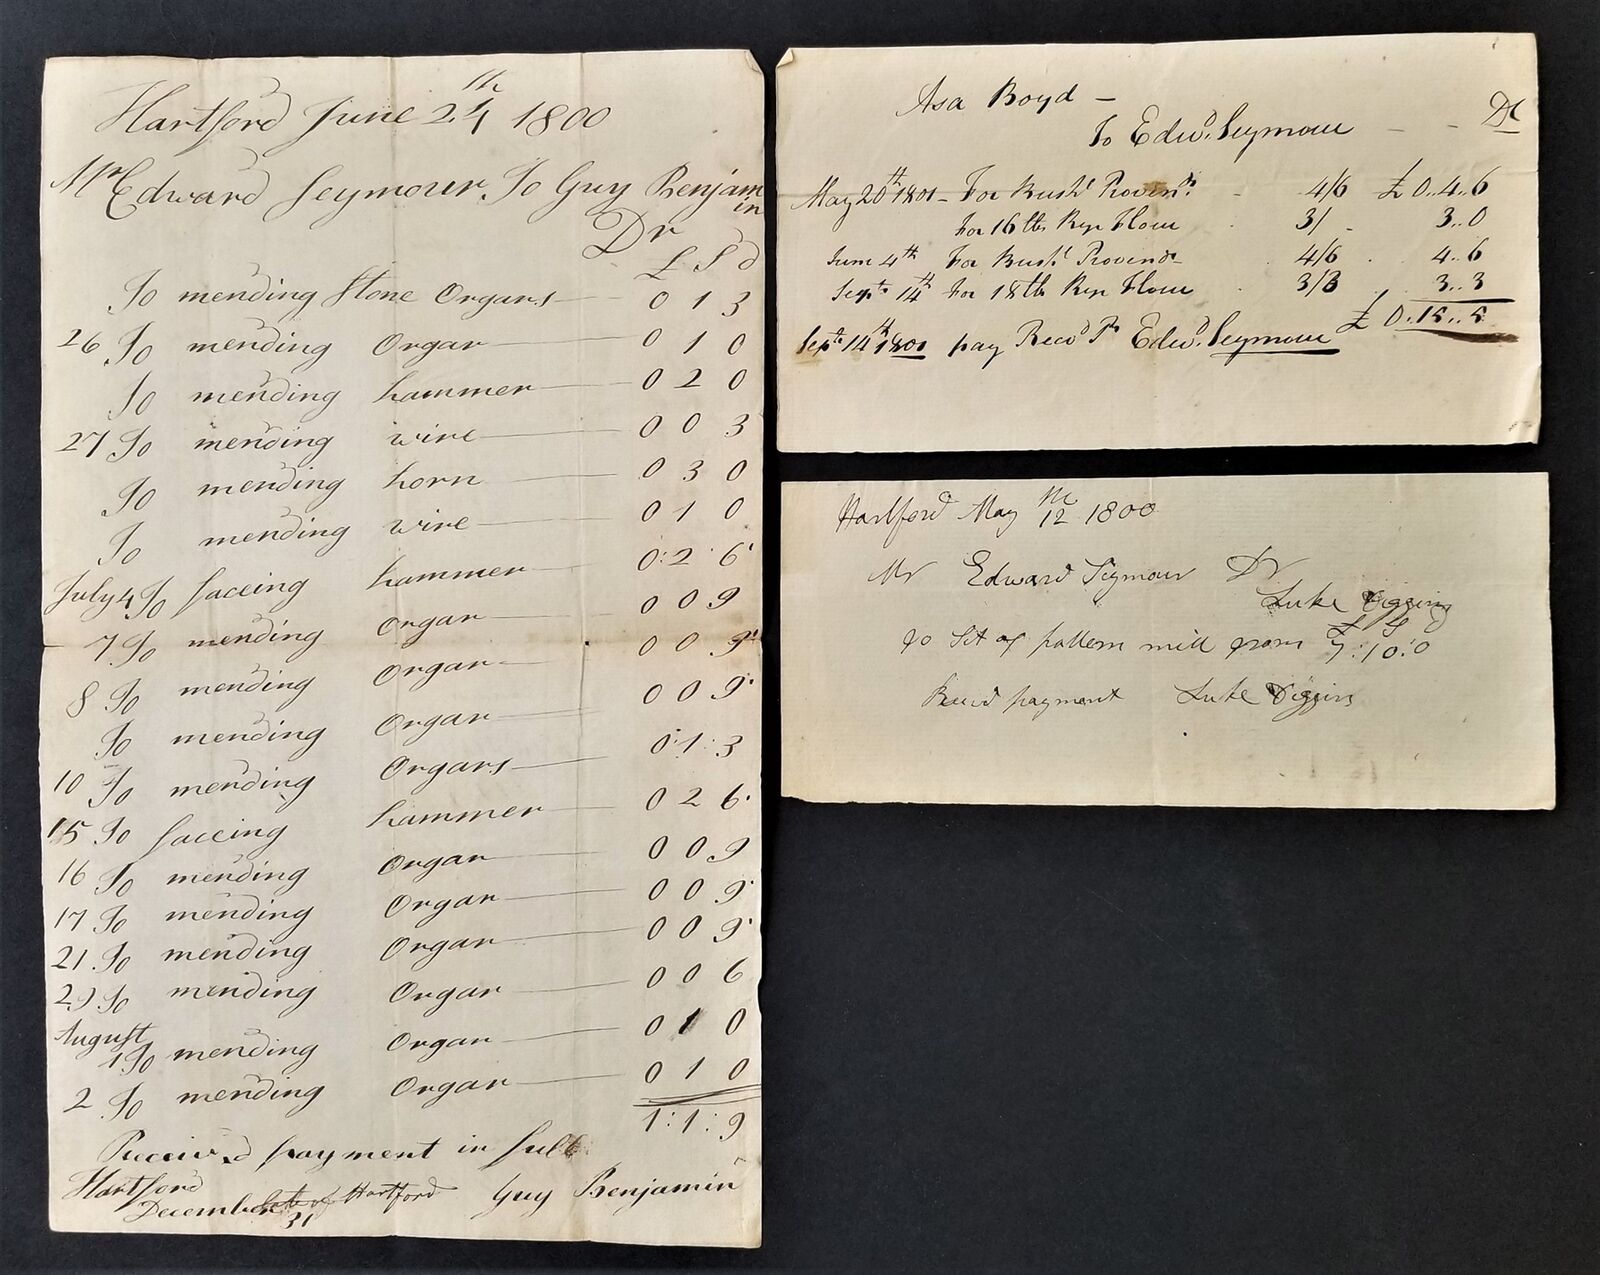 Hartford June 24th 1800
Mr Edward Seymour. To Guy Benjam
in
Dr
£ S d
To mending Stone Organs 0 1 3
26 To mending Organ 0 1 0
To mending hammer 0 2 0
27 To mending wire 0 0 3
To mending horn 0 3 0
To mending wire 0 1 0
July 4 To faceing hammer 0:2:6
7 To mending Organ 0 0 9
8 To mending Organ 0 0 9
To mending Organ 0 0 9
10 To mending Organs 0:1:3
15 To faceing hammer 0 2 6
16 To mending Organ 0 0 9
17 To mending Organ 0 0 9
21 To mending Organ 0 0 9
29 To mending Organ 0 0 6
August
1 To mending Organ 0 1 0
2 To mending Organ 0 1 0
1:1:9
Received payment in full
Hartford
December of Hartford Guy Benjamin
31
Asa Boyd –
To Edwd. Seymour – – Dr
May 20th 1801 – For Bushl Provendr. 4/6 £0..4..6
For 16 lb Rye Flour 3/ - 3..0
June 4th For Bushl Provendr 4/6 4..6
Sept. 14th for 18 lb Rye Flour 3/3 3..3
£0..15..5
Sept. 14th 1801 pay Recd Pr Edwd. Seymour
Hartford May 12th 1800
Mr Edward Seymour Dr
Luke Viggins
to Set of pattern mill £ S
7:10:0
Recd payment Luke Viggins